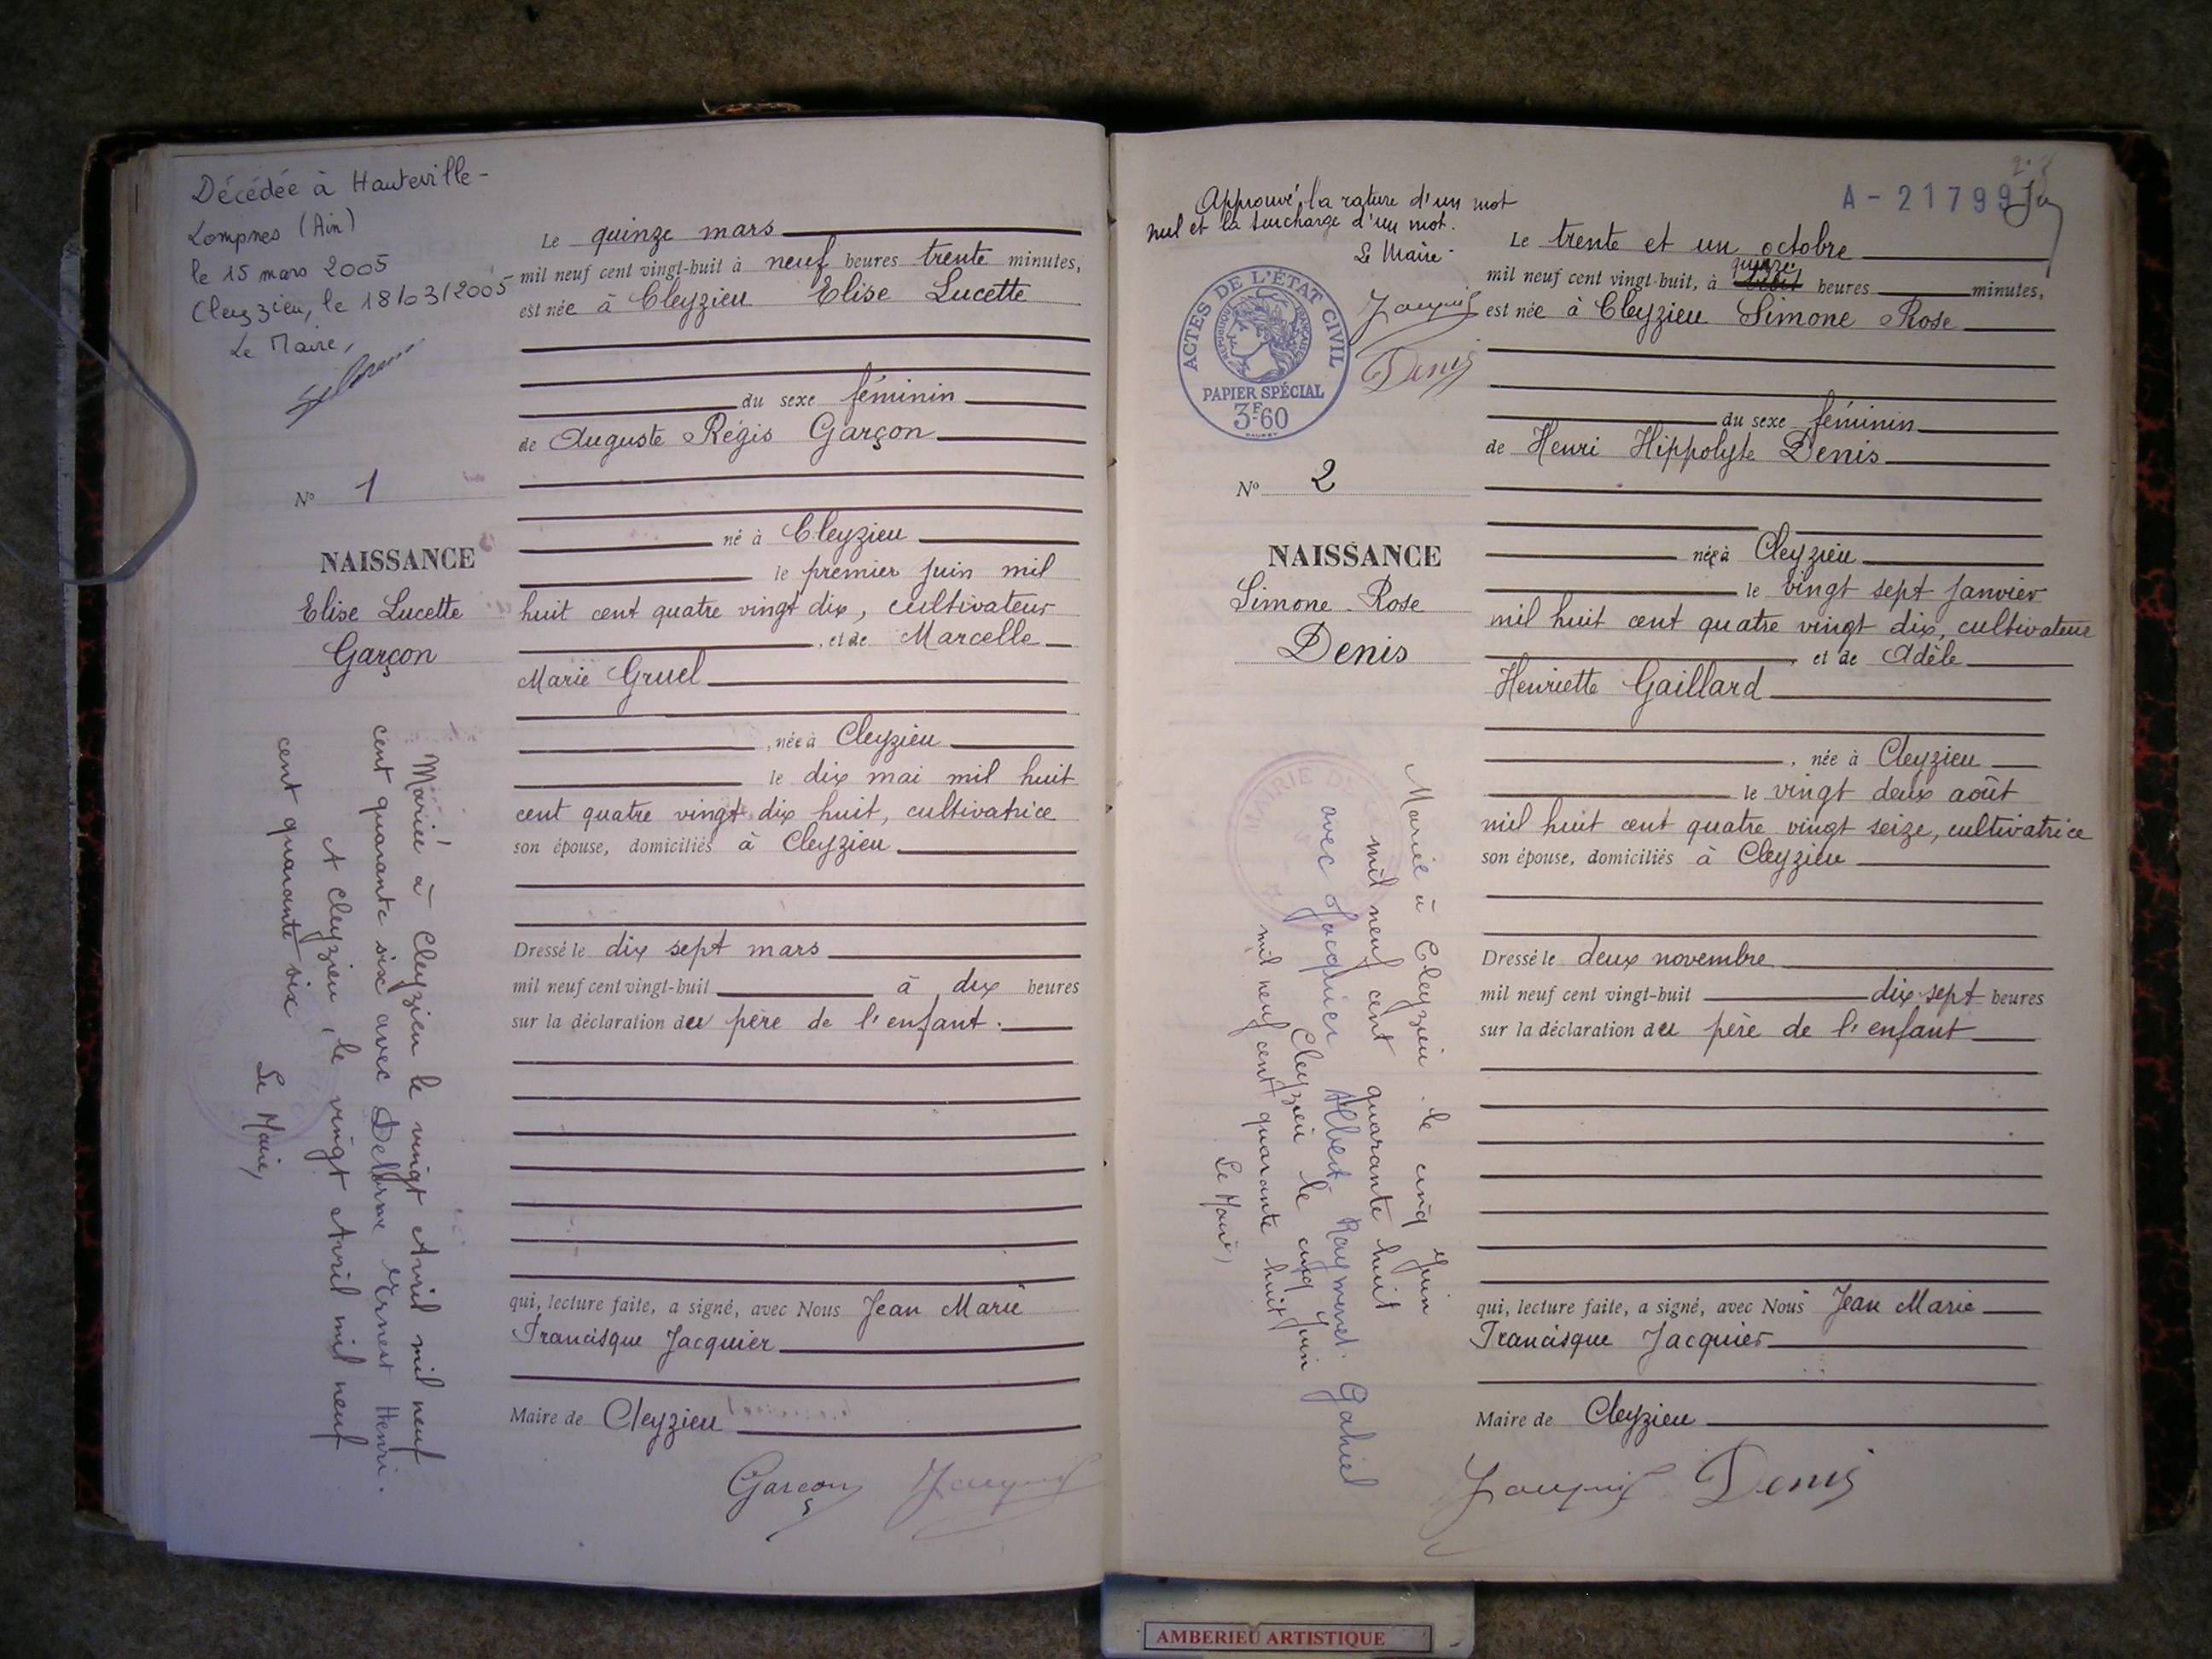 Décédée à Hauteville-
Lompnes (Ain)
le 15 mars 2005
Cleyzieu, le 18/03/2005
Le Maire,
N° 1
NAISSANCE
Elise Lucette
Garçon
Mariée à Cleyzieu le vingt Avril mil neuf
cent quarante six avec Delorme Ernest Henri.
A Cleyzieu, le vingt Avril mil neuf
cent quarante six
Le Maire,
Le quinze mars
mil neuf cent vingt-huit à neuf heures trente minutes,
est née à Cleyzieu Elise Lucette
du sexe féminin
de Auguste Régis Garçon
né à Cleyzieu
le premier juin mil
huit cent quatre vingt dix, cultivateur
, et de Marcelle
Marie Gruel
, née à Cleyzieu
le dix mai mil huit
cent quatre vingt dix huit, cultivatrice
son épouse, domiciliés à Cleyzieu
Dressé le dix sept mars
mil neuf cent vingt-huit à dix heures
sur la déclaration du père de l'enfant.
qui, lecture faite, a signé, avec Nous Jean Marie
Francisque Jacquier
Maire de Cleyzieu
Garçon
Approuvé la rature d'un mot
nul et la surcharge d'un mot.
Le Maire
Denis
ACTES DE L'ÉTAT CIVIL
RÉPUBLIQUE FRANÇAISE
PAPIER SPÉCIAL
3F60
N° 2
NAISSANCE
Simone Rose
Denis
MAIRIE DE
Mariée à Cleyzieu le cinq Juin
mil neuf cent quarante huit
avec Jacquier Albert Raymond Gabriel
Cleyzieu le cinq Juin
mil neuf cent quarante huit
Le Maire,
A-21799
Le trente et un octobre
quinze
mil neuf cent vingt-huit, à heures minutes,
est née à Cleyzieu Simone Rose
du sexe féminin
de Henri Hippolyte Denis
née à Cleyzieu
le vingt sept janvier
mil huit cent quatre vingt dix, cultivateur
, et de Adèle
Henriette Gaillard
, née à Cleyzieu
le vingt deux août
mil huit cent quatre vingt seize, cultivatrice
son épouse, domiciliés à Cleyzieu
Dressé le deux novembre
mil neuf cent vingt-huit dix sept heures
sur la déclaration du père de l'enfant
qui, lecture faite, a signé, avec Nous Jean Marie
Francisque Jacquier
Maire de Cleyzieu
Denis
AMBERIEU ARTISTIQUE